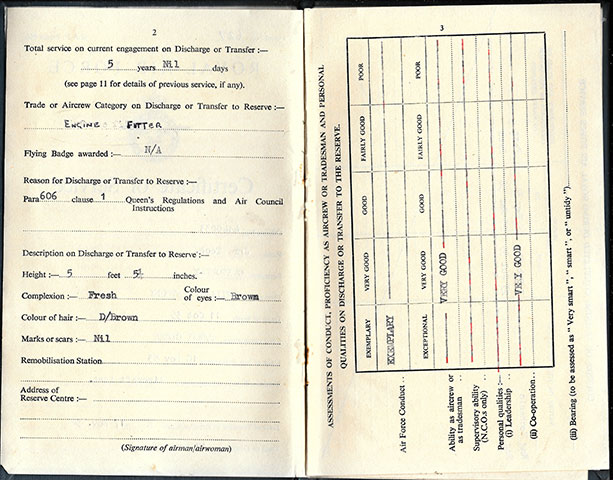 2
Total service on current engagement on Discharge or Transfer :—
5 years Nil days
(see page 11 for details of previous service, if any).
Trade or Aircrew Category on Discharge or Transfer to Reserve :—
ENGINE FITTER
Flying Badge awarded :— N/A
Reason for Discharge or Transfer to Reserve :—
Para 606 clause 1 Queen's Regulations and Air Council
Instructions
Description on Discharge or Transfer to Reserve :—
Height :— 5 feet 5½ inches.
Complexion :— Fresh Colour
of eyes :— Brown
Colour of hair :— D/Brown
Marks or scars :— Nil
Remobilisation Station
Address of
Reserve Centre :—
(Signature of airman/airwoman)
3
ASSESSMENTS OF CONDUCT, PROFICIENCY AS AIRCREW OR TRADESMAN AND PERSONAL
QUALITIES ON DISCHARGE OR TRANSFER TO THE RESERVE.
EXEMPLARY VERY GOOD GOOD FAIRLY GOOD POOR
Air Force Conduct .. EXEMPLARY
EXCEPTIONAL VERY GOOD GOOD FAIRLY GOOD POOR
Ability as aircrew or
as tradesman .. VERY GOOD
Supervisory ability
(N.C.O.s only) ..
Personal qualities :—
(i) Leadership .. VERY GOOD
(ii) Co-operation ..
(iii) Bearing (to be assessed as "Very smart", "smart", or "untidy").